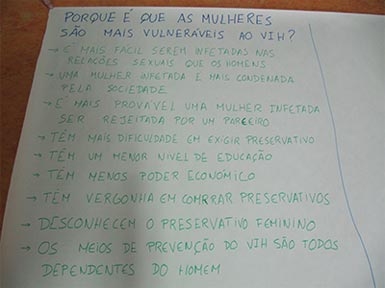 PORQUE É QUE AS MULHERES
SÃO MAIS VULNERÁVEIS AO VIH?
→ É MAIS FÁCIL SEREM INFETADAS NAS
RELAÇÕES SEXUAIS QUE OS HOMENS
→ UMA MULHER INFETADA É MAIS CONDENADA
PELA SOCIEDADE
→ É MAIS PROVÁVEL UMA MULHER INFETADA
SER REJEITADA POR UM PARCEIRO
→ TÊM MAIS DIFICULDADE EM EXIGIR PRESERVATIVO
→ TÊM UM MENOR NIVEL DE EDUCAÇÃO
→ TÊM MENOS PODER ECONÓMICO
→ TÊM VERGONHA EM COMPRAR PRESERVATIVOS
→ DESCONHECEM O PRESERVATIVO FEMININO
→ OS MEIOS DE PREVENÇÃO DO VIH SÃO TODOS
DEPENDENTES DO HOMEM